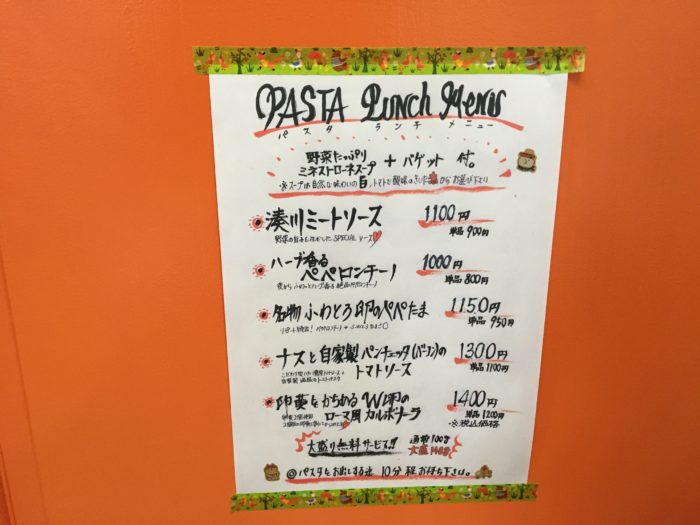 PASTA Lunch Menu
パスタ ランチ メニュー
野菜たっぷり
ミネストローネスープ + バゲット 付。
※スープは自然な味わいの白、トマトと酸味のきいた赤からお選び下さい
湊川ミートソース 1100円
野菜の旨みを活かした SPECIAL ソース 単品 900円
ハーブ香る 1000円
ペペロンチーノ 単品 800円
名物 ふわとろ卵のペペたま 1150円
単品 950円
ナスと自家製パンチェッタ(ベーコン)の 1300円
トマトソース 単品 1100円
卵黄をからめる W卵の 1400円
ローマ風カルボナーラ 単品 1200円
※税込価格
大盛り無料サービス!! 通常 100g
大盛 140g
@パスタをお出しするまで 10分程お待ち下さい。